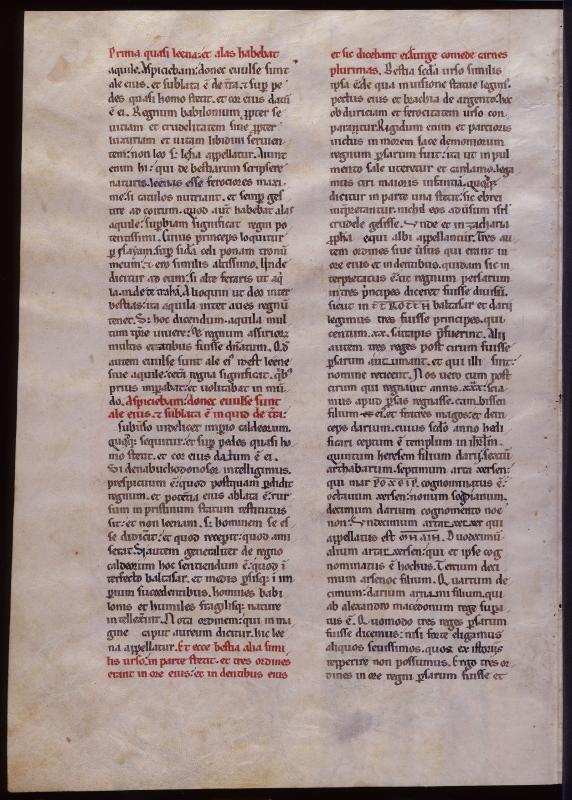 Prima quasi leena: et alas habebat
aquile. Aspiciebam: donec euulse sunt
ale eius. et sublata ē de t̄ra. ⁊ sup̄ pe
des quasi homo stetit. et cor eius datū
ē ei. Regnum babilonium ꝓpter se
uitiam et crudelitatem siue ꝓpter
luxuriam et uitam libidini seruien
tem: non leo s: lęna appellatur. Aiunt
enim hi: qui de bestiarum scripsere
naturis. leenas esse ferociores maxi
me si catulos nutriant. et semp̄ ges
tire ad coitum. quod aut̄ habebat alas
aquile: sup̄biam significat regni po
tentissimi. Cuius princeps loquitur
ꝑ ysayam. sup̄ sida celi ponam tronū
meum: ⁊ ero similis altissimo. Unde
dicitur ad eum. si alte feraris ut aq̄
la. inde te trahā. Alioquin ut leo inter
bestias: ita aquila inter aues regnū
tenet. S: hoc dicendum. aquila mul
tum tp̄re uiuere: ⁊ regnum assiriorȝ
multis etatibus fuisse dn̄atum. Qd̄
autem euulse sunt ale eius leene
siue aquile: cet̄a regna significat. qb̄ȝ
prius imp̄abat: et uolitabat in mū
do. Aspiciebam: donec euulse sunt
ale eius. ⁊ sublata ē inquid de t̄ra:
subuerso uidelicet imp̄io caldeorum.
quoqȝ sequitur: et sup̄ pedes quasi ho
mo stetit. et cor eius datum ē ei.
Si de nabuchodonosor intelligimus.
perspicuum ē: quod postquam ꝑdidit
regnum. et potētia eius ablata ē: rur
sum in pristinum statum restitutus
sit: et non leenam. s: hominem se es
se didicit: et quod recepit: quod ami
serat. Si autem generaliter de regno
caldeorum hoc sentiendum ē: quod ī
terfecto baltasar. et medis ꝑsisqȝ ī im
ꝑium succedentibus. homines babi
lonis et humiles fragilisqȝ nature
intellexerint. Nota ordinem: qui in ma
gine caput aureum dicitur. hic lee
na appellatur. Et ecce bestia alia simi
lis urso: in parte stetit. et tres ordines
erant in ore eius: et in dentibus eius
et sic dicebant ei: surge comede carnes
plurimas. Bestia scd̄a urso similis
ipsa ē: de qua in uisione statue legim̄.
pectus eius et brachia de argento: hoc
ob duriciam et ferocitatem urso con
paratur. Rigidum enim et parcioris
uictus in morem lacedemoniorum
regnum ꝑsarum fuit: ita ut in pul
mento sale uterentur et cardamo. lega
mus ciri maioris infantiā. quoqȝ
dicitur in parte una stetit. sic ebrei
int̄pretantur. nichil eos adu̅sum isrl̄
crudele gessisse. Unde et in zacharia
ꝓpha equi albi appellantur. Tres au
tem ordines siue u̅sus qui erant in
ore eius et in dentibus. quidam sic in
terpretatus ē: ut regnum persarum
in tres p̄ncipes diceret fuisse diuisū.
sicut in baltasar et darii
legimus tres fuisse principes. qui
centum .xx. satrapis p̄fuerint. Alii
autem tres reges post cirum fuisse
ꝑsarum autumant. et qui illi sint:
nomine reticent. Nos uero cum post
cirum qui regnauit annis .xxx. scia
mus apud ꝑsas regnasse. cambissen
filium ei. et fratres magos: et dein
ceps darium. cuius scd̄o anno hedi
ficari ceptum ē templum in ihrl̄m.
quintum xersem filium darii. sextū
archabarum. septimum artaxersen:
qui mar cognominatus ē:
octauum xersen: nonum sogdianum.
decimum darium cognomento noe
non. Undecimum artaxerxer qui
appellatus est Duodecimū
alium artaxersen: qui et ipse cog
nominatus ē hochus. Tercium deci
mum arsenoc filium. Quartum de
cimum: darium arsami filium. qui
ab alexandro macedonum rege supa
tus ē. Quomodo tres reges ꝑsarum
fuisse dicemus: nisi forte eligamus
aliquos seuissimos. quos ex istoriis
repperire non possumus. Ergo tres or
dines in ore regni ꝑsarum fuisse et